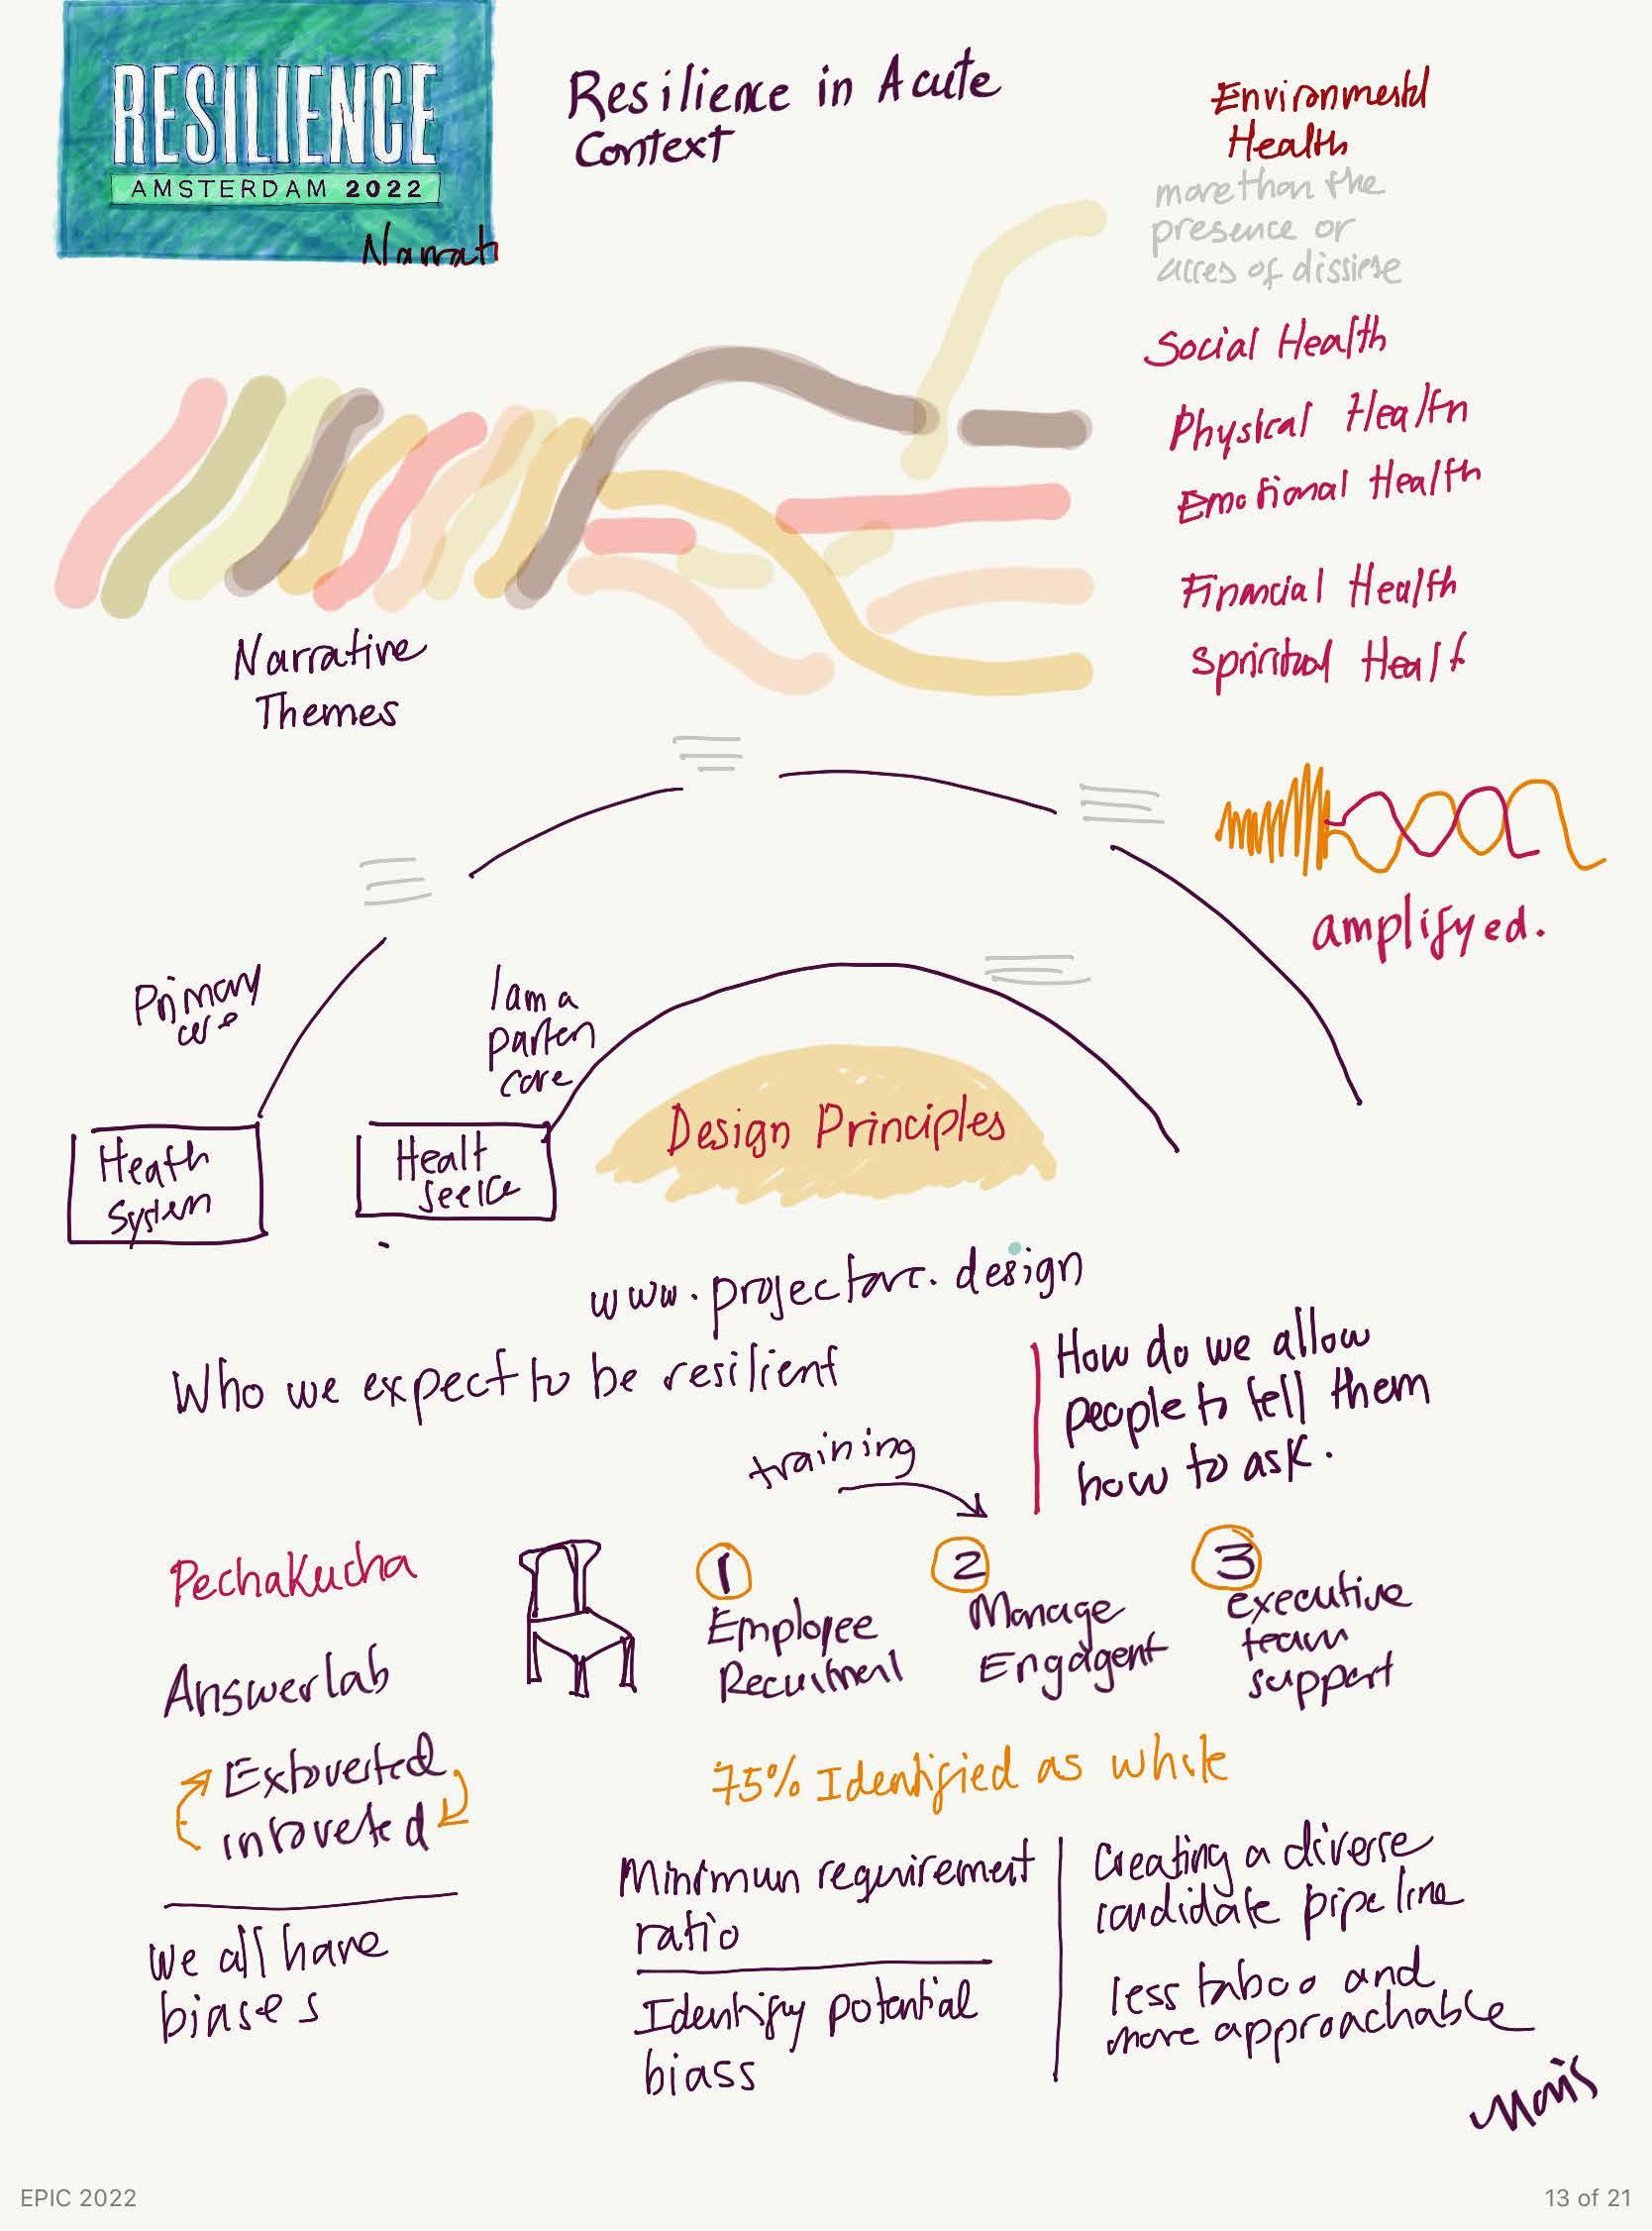 RESILIENCE
AMSTERDAM 2022
Narrati
Resilience in Acute
Context
Environmental
Health
more than the
presence or
of
Social Health
Physical Health
Emotional Health
Financial Health
Healt
Narrative
Themes
amplifyed.
Primary
care
I am a
care
Heath
System
Healt
Design Principles
www.projectarc.design
Who we expect to be resilient
How do we allow
people to tell them
how to ask.
training
PechaKucha
Answerlab
Extoverted
introveted
we all have
biases
1
Employee
Recuitment
2
Manage
Engagent
3
executive
team
support
75% Identified as white
Minimun requirement
ratio
Identify potential
biass
Creating a diverse
candidate pipeline
less taboo and
more approachable
EPIC 2022
13 of 21